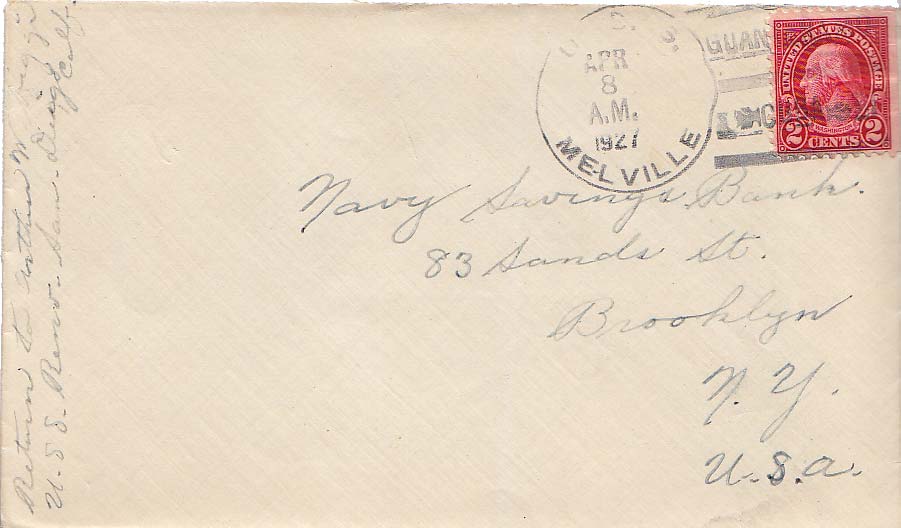 Return to Arthur W.
U.S.S. Reno. San. Diego
Calif.
U. S. S.
APR
8
A.M.
1927
MELVILLE
GUAN
UNITED STATES POSTAGE
WASHINGTON
2 CENTS 2
Navy Savings Bank.
83 Sands St.
Brooklyn
N. Y.
U.S.a.